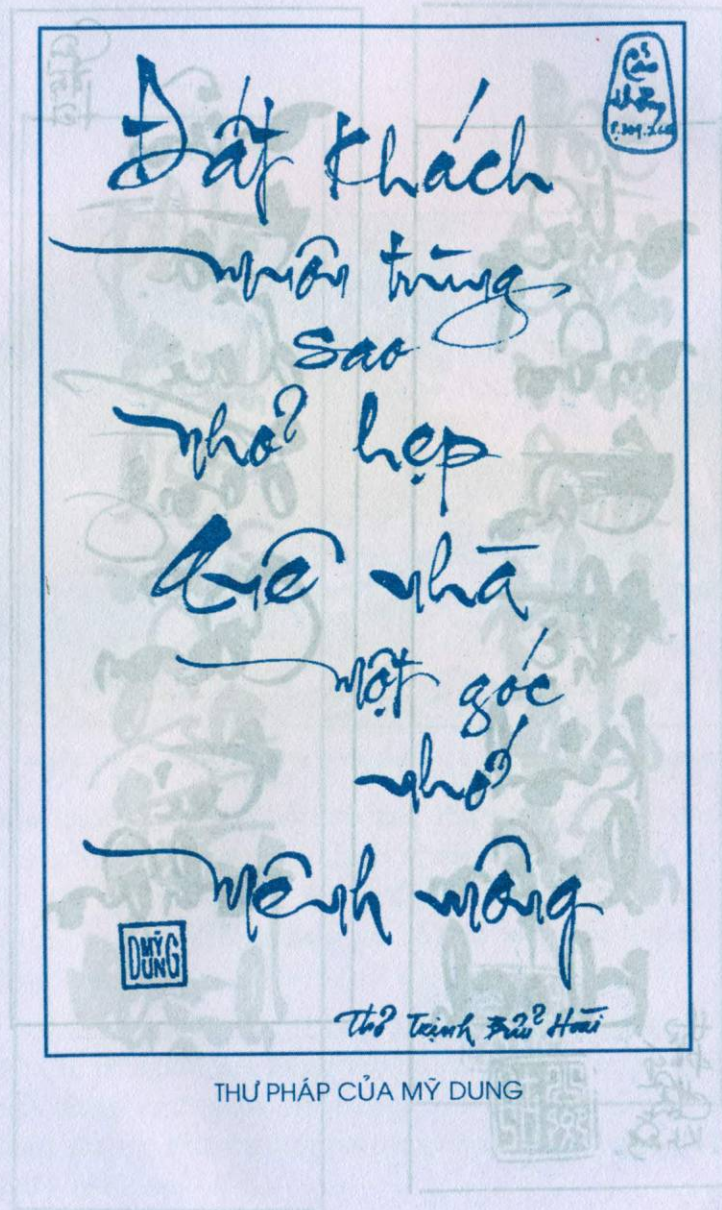 Đất khách
muôn trùng
sao
nhỏ hẹp
Quê nhà
một góc
nhớ
mênh mông
MỸ DUNG
Thơ Trịnh Bửu Hoài
THƯ PHÁP CỦA MỸ DUNG